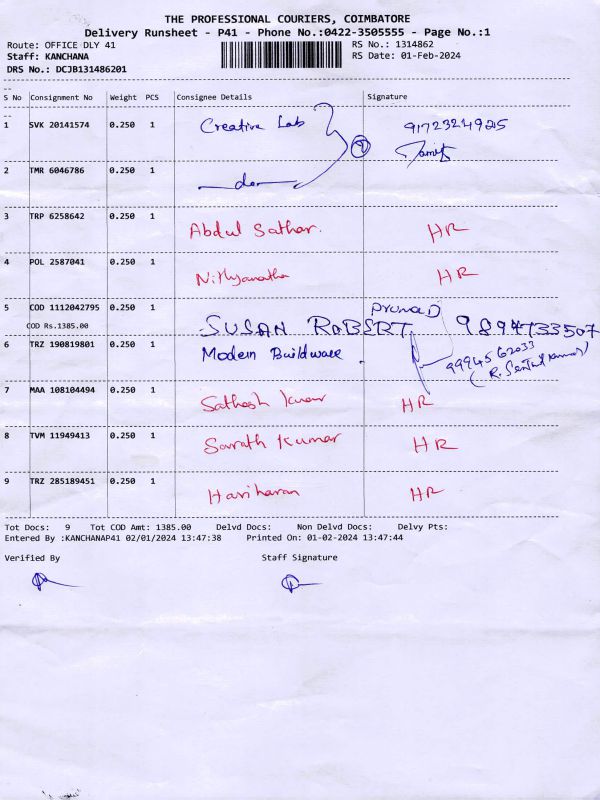 THE PROFESSIONAL COURIERS, COIMBATORE
Delivery Runsheet - P41 - Phone No.:0422-3505555 - Page No.:1
Route: OFFICE DLY 41 RS No.: 1314862
Staff: KANCHANA RS Date: 01-Feb-2024
DRS No.: DCJB131486201
S No Consignment No Weight PCS Consignee Details Signature
1 SVK 20141574 0.250 1 Creative Lab 9172324925
2 TMR 6046786 0.250 1 do
3 TRP 6258642 0.250 1 Abdul Sathar. HR
4 POL 2587041 0.250 1 Nithyanatha HR
5 COD 1112042795 0.250 1
COD Rs.1385.00 SUSAN ROBERT. 9894733507
6 TRZ 190819801 0.250 1 Modern Buildware 9994562033
7 MAA 108104494 0.250 1 Sathesh Kumar HR
8 TVM 11949413 0.250 1 Sarath Kumar HR
9 TRZ 285189451 0.250 1 Hariharan HR
Tot Docs: 9 Tot COD Amt: 1385.00 Delvd Docs: Non Delvd Docs: Delvy Pts:
Entered By :KANCHANAP41 02/01/2024 13:47:38 Printed On: 01-02-2024 13:47:44
Verified By Staff Signature